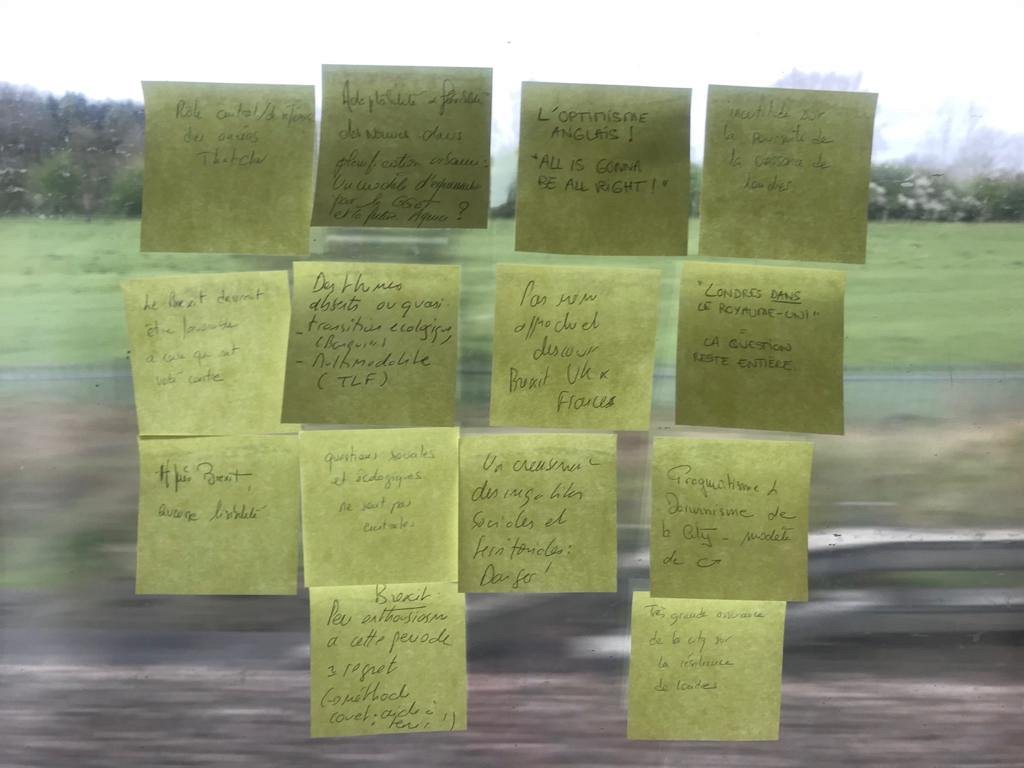 Rôle central
des années
Thatcher
Adaptabilité &
dans
planification urbaine:
Un modèle
par le
et la future Agence ?
L'OPTIMISME
ANGLAIS !
"ALL IS GONNA
BE ALL RIGHT !"
incertitude sur
la poursuite de
la croissance de
Londres
Le Brexit devrait
être favorable
à ceux qui ont
voté contre
Des thèmes
absents ou quasi
- transition écologique
- Multimodalité
(TLF)
Pas mm
approche et
discours
Brexit UK x
France
"LONDRES DANS
LE ROYAUME-UNI"
=
LA QUESTION
RESTE ENTIÈRE.
Après Brexit,
aucune lisibilité
questions sociales
et écologiques
ne sont pas
centrales
Un creusement
des inégalités
sociales et
territoriales:
Danger!
Pragmatisme &
Darwinisme de
la City - modèle
de
Brexit
Peu enthousiasme
à cette période
regret
(méthode
Très grande assurance
de la city sur
la résilience
de Londres